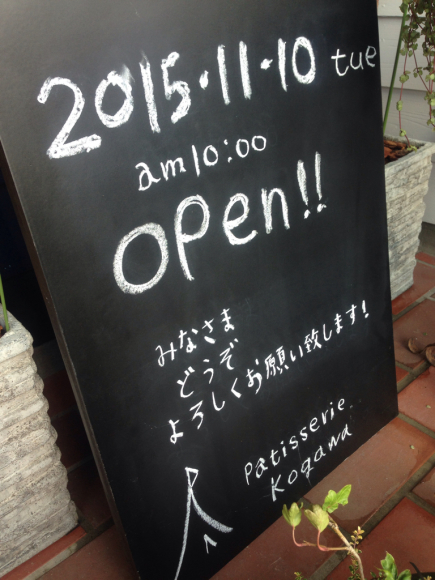 2015.11.10 tue
am10:00
open!!
みなさま
どうぞ
よろしくお願い致します!
Patisserie
Kogawa